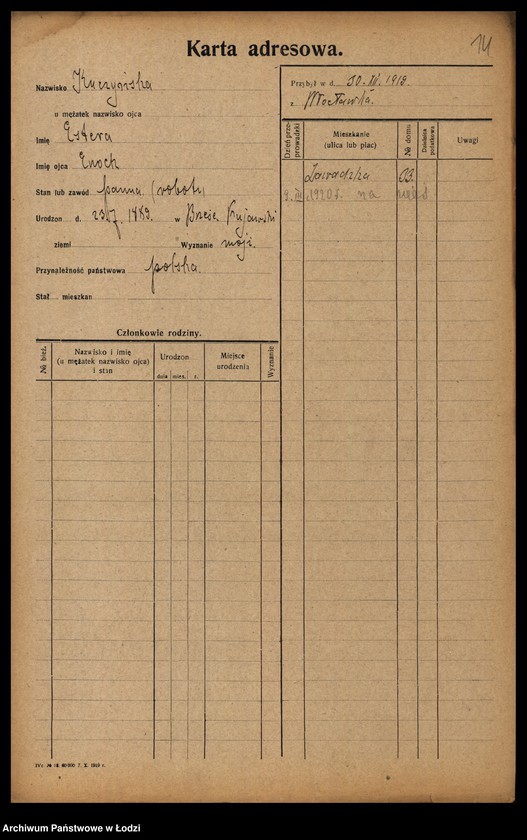 Karta adresowa.
14
Nazwisko Kuczyńska
u mężatek nazwisko ojca
Imię Estera
Imię ojca Enoch
Stan lub zawód panna (robotn
Urodzon d. 1889. w Brześć Kujawski
ziemi Wyznanie mojż.
Przynależność państwowa polska
Stał mieszkan
Przybył w d. 30. XII. 1918.
z Włocławka.
Dzień przeprowadzki
Mieszkanie
(ulica lub plac)
№ domu
Działalnia podatkowa
Uwagi
Zawadzka
1920 r. na wieś
Członkowie rodziny.
№ bież.
Nazwisko i imię
(u mężatek nazwisko ojca)
i stan
Urodzon
dnia mies. r.
Miejsce
urodzenia
Wyznanie
Archiwum Państwowe w Łodzi